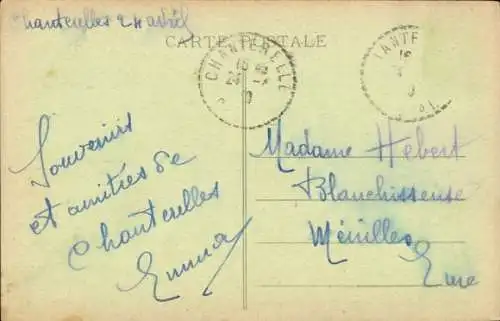 Chanterelles 24 avril
CARTE POSTALE
CHANTERELLE
Souvenirs
et amitiés de
Chanterelles
Emma
Madame Hébert
Blanchisseuse
Ménilles
Eure